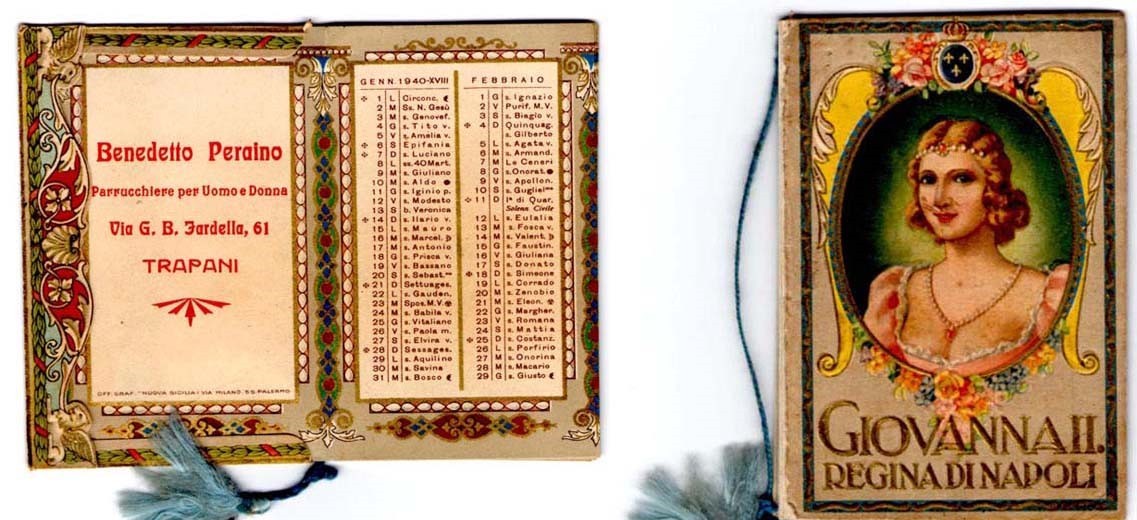 Benedetto Peraino
Parrucchiere per Uomo e Donna
Via G. B. Fardella, 61
TRAPANI
OFF. GRAF. "NUOVA SICILIA" VIA MILANO, 55-PALERMO
GENN. 1940-XVIII
1 L Circonc.
2 M Ss. N. Gesù
3 M s. Genovef.
4 G s. Tito v.
5 V s. Amelia v.
6 S Epifania
7 D s. Luciano
8 L ss. 40 Mart.
9 M s. Giuliano
10 M s. Aldo
11 G s. Iginio p.
12 V s. Modesto
13 S b. Veronica
14 D s. Ilario v.
15 L s. Mauro
16 M s. Marcel.
17 M s. Antonio
18 G s. Prisca v.
19 V s. Bassano
20 S s. Sebast.
21 D Settuages.
22 L s. Gauden.
23 M Spos. M.V.
24 M s. Babila v.
25 G s. Vitaliano
26 V s. Paola m.
27 S s. Elvira v.
28 D Sessages.
29 L s. Aquilino
30 M s. Savina
31 M s. Bosco
FEBBRAIO
1 G s. Ignazio
2 V Purif. M.V.
3 S s. Biagio v.
4 D Quinquag.
s. Gilberto
5 L s. Agata v.
6 M s. Armand.
7 M Le Ceneri
8 G s. Onorat.
9 V s. Apollon.
10 S s. Gugliel.mo
11 D Iª di Quar.
Solenn. Civile
12 L s. Eulalia
13 M s. Fosca v.
14 M s. Valent.
15 G s. Faustin.
16 V s. Giuliana
17 S s. Donato
18 D s. Simeone
19 L s. Corrado
20 M s. Zenobio
21 M s. Eleon.
22 G s. Margher.
23 V s. Romana
24 S s. Mattia
25 D s. Costanz.
26 L s. Porfirio
27 M s. Onorina
28 M s. Macario
29 G s. Giusto
GIOVANNA II.
REGINA DI NAPOLI